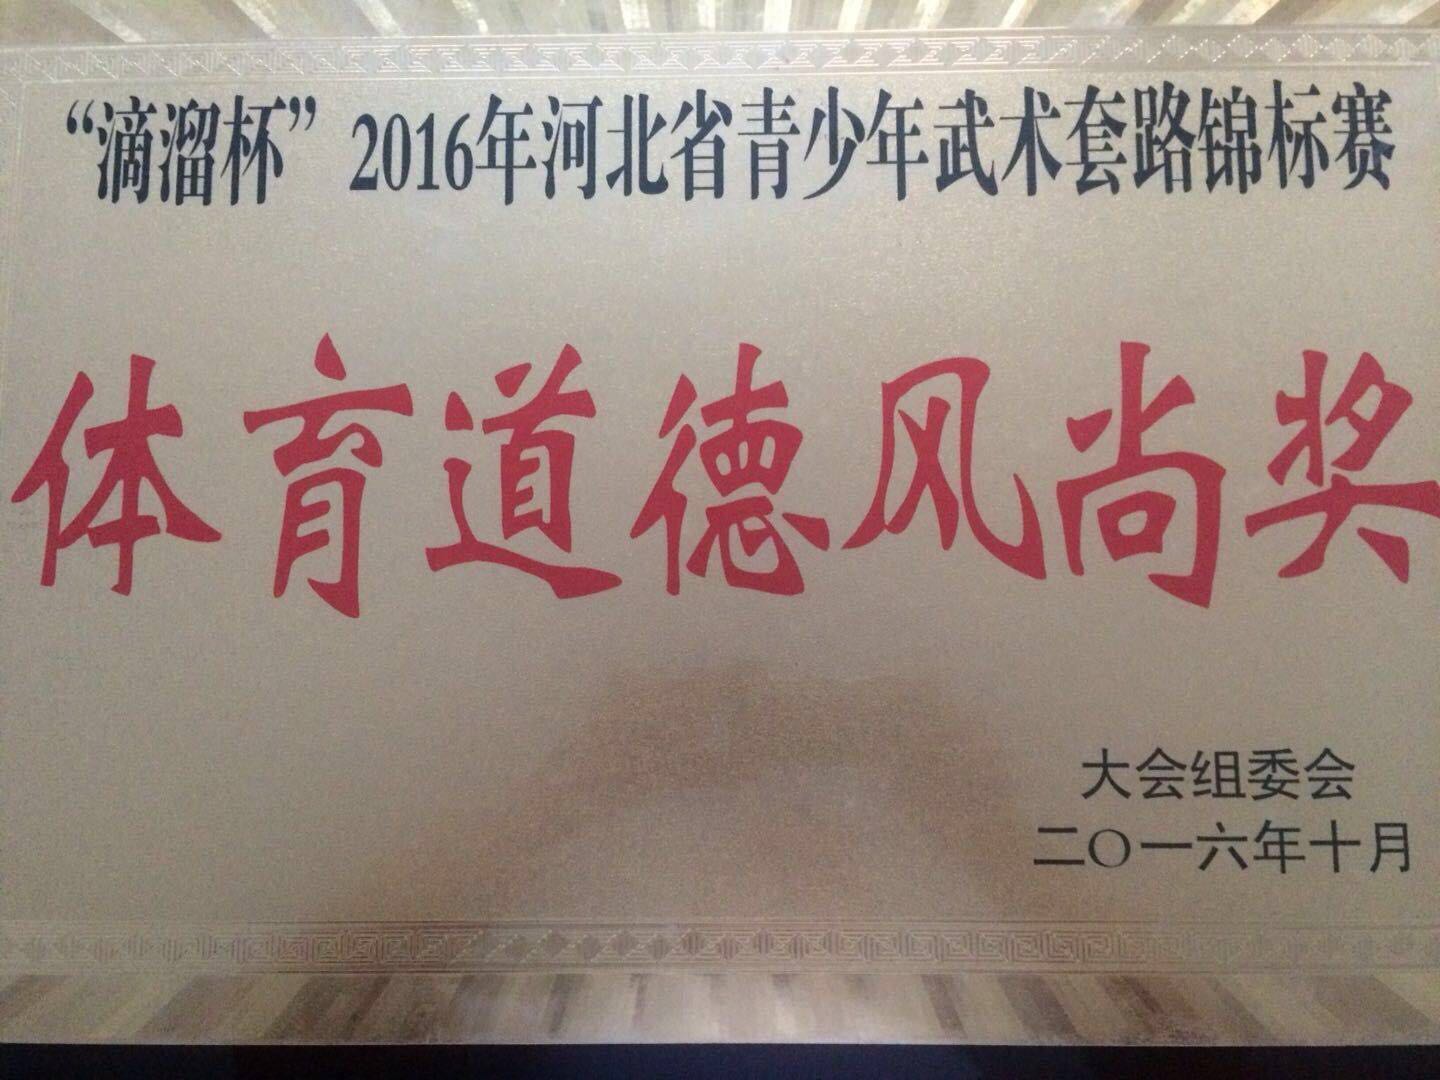 “滴溜杯”2016年河北省青少年武术套路锦标赛
体育道德风尚奖
大会组委会
二〇一六年十月